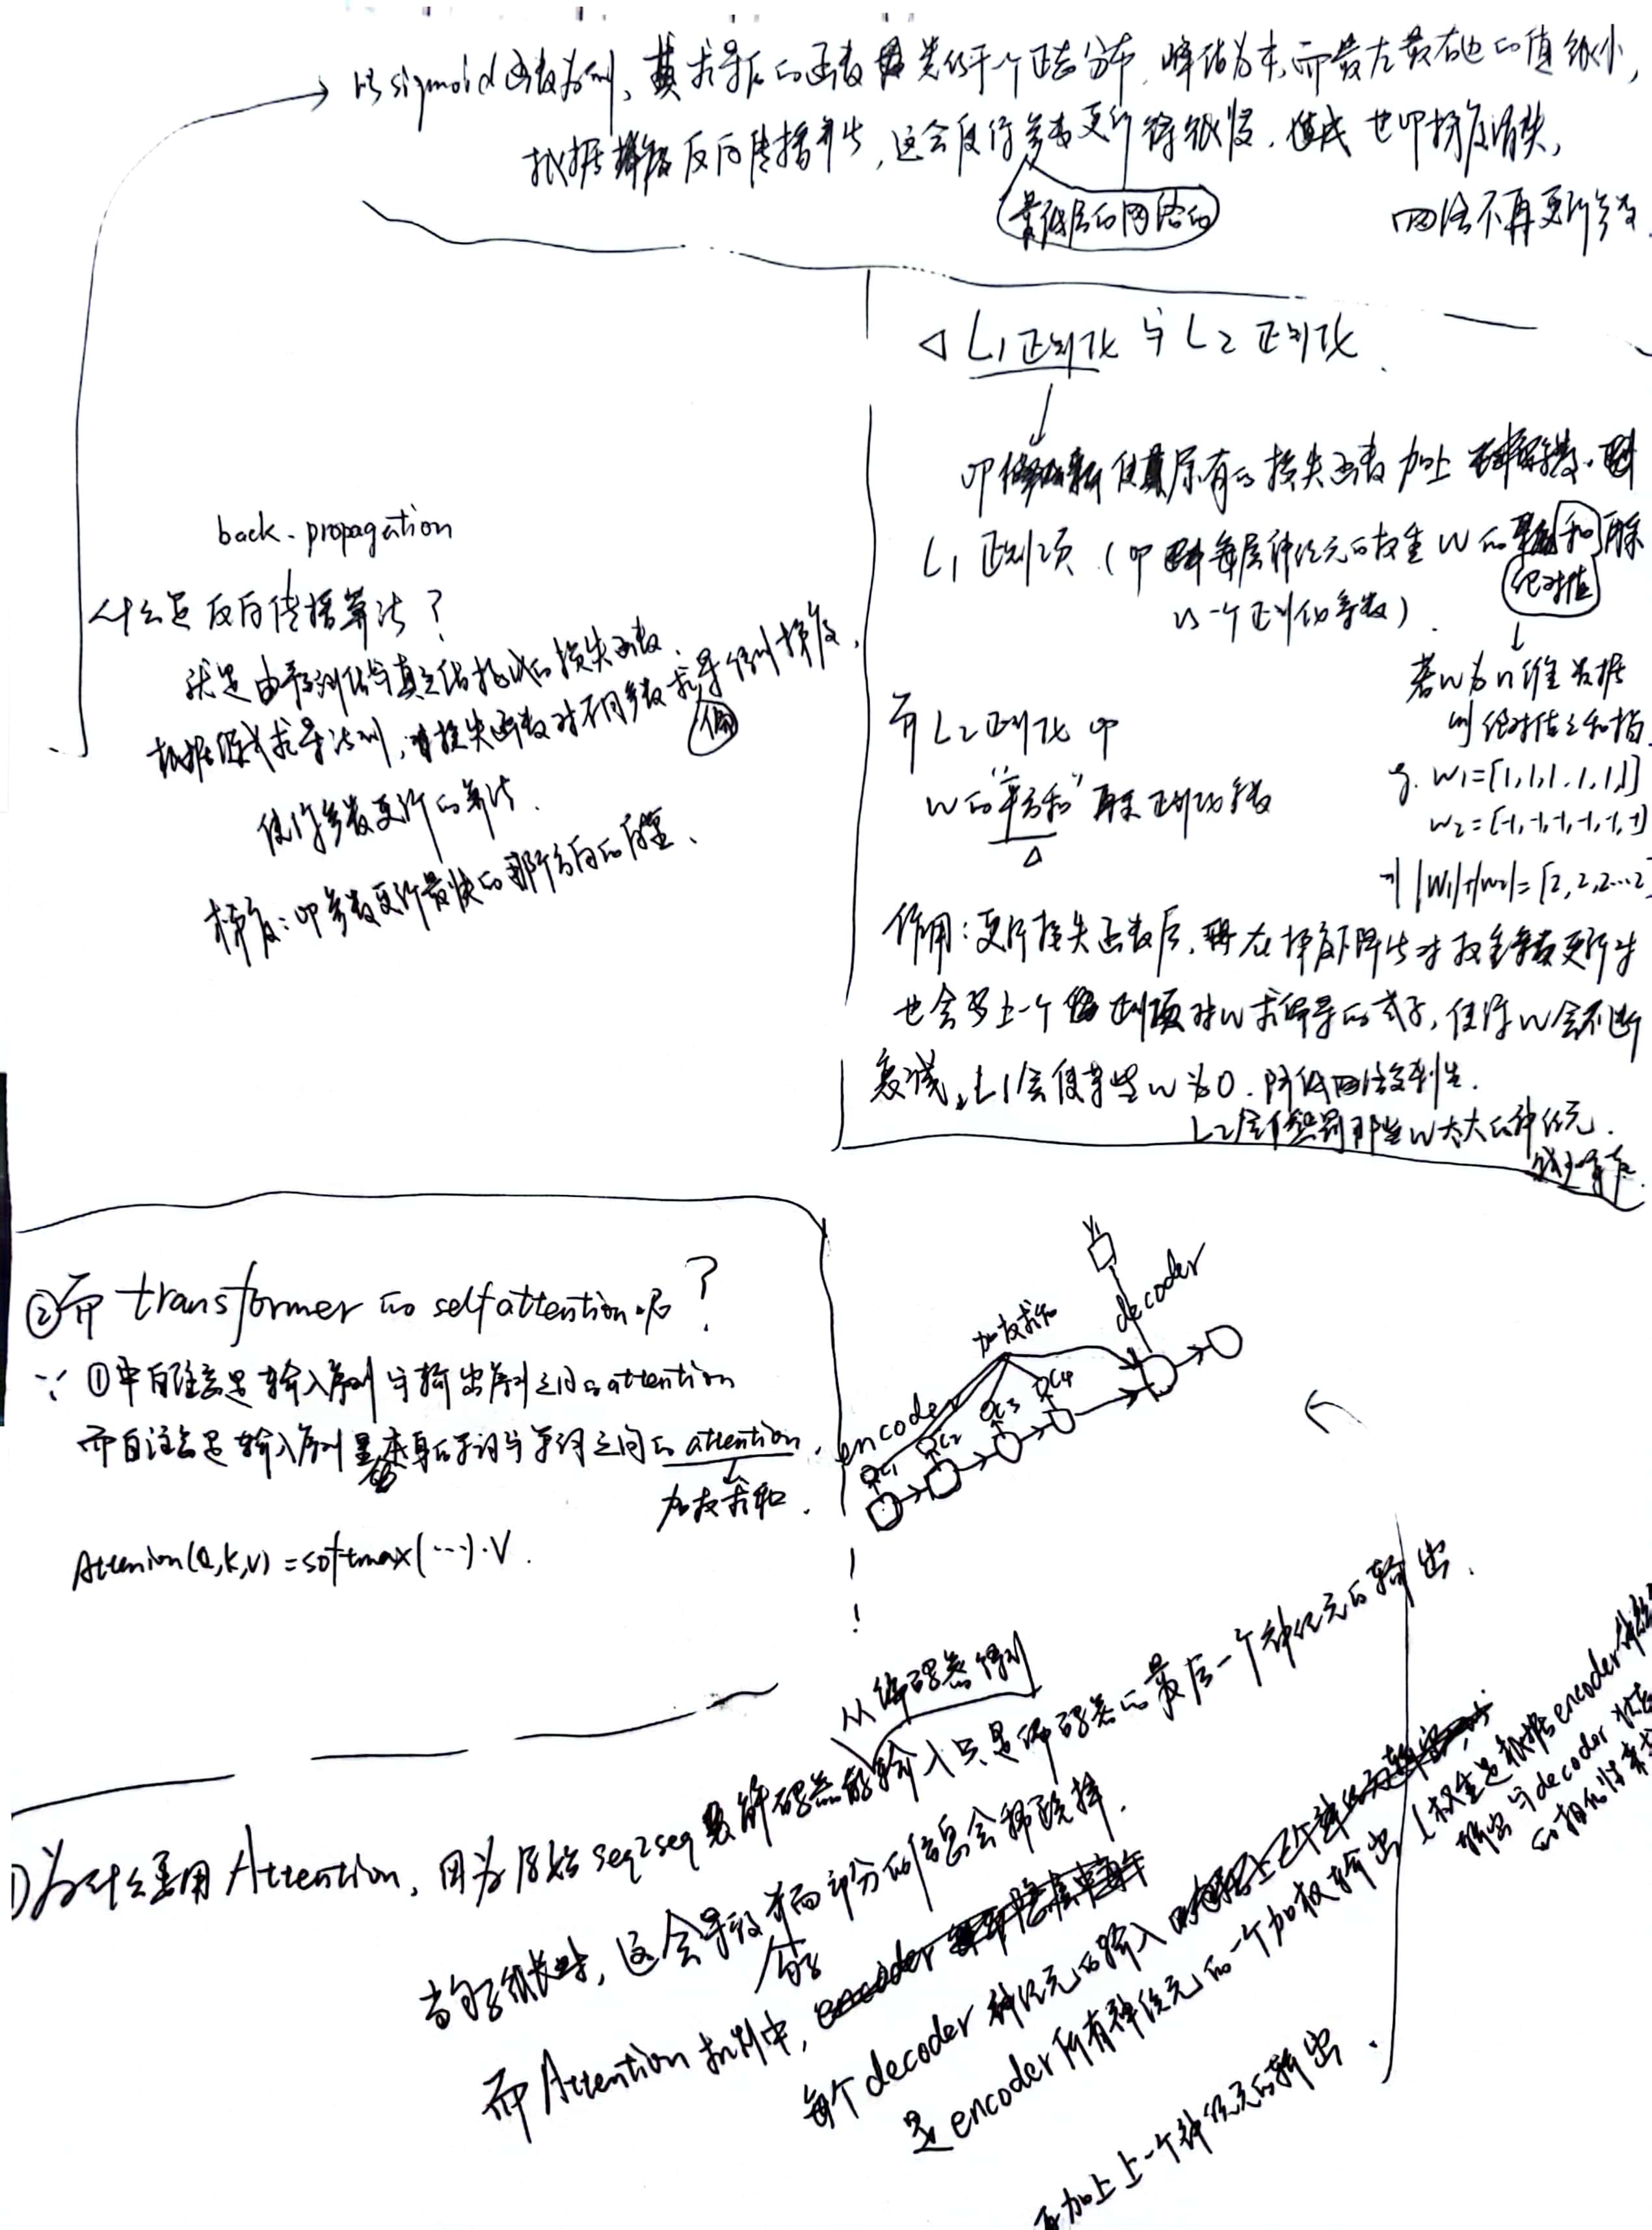 以sigmoid函数为例，其求导后的函数类似于一个正态分布，峰值为，而最左最右边的值很小，
根据反向传播算法，这会使得参数更新得很慢，也即梯度消失，
最低层的网络的
网络不再更新参数
L1正则化 与 L2正则化
即使其原有的损失函数加上
L1正则项（即每层神经元的权重W的和再乘
绝对值
以一个正则化系数）.
若w为n维数据
则绝对值之和指
g. W1=[1,1,1,1,1,1]
W2=[-1,-1,-1,-1,-1,-1]
则|W1|+|W2|=[2,2,2…2
而L2正则化即
W的“平方和”再乘正则化系数
作用：更新损失函数后，在梯度下降法对权重参数更新时
也会多上一个正则项对W求偏导的式子，使得W会不断
衰减，L1会使某些W为0，降低网络复杂性.
L2会惩罚那些W太大的神经元.
back-propagation
什么是反向传播算法？
就是由预测值与真实值构成的损失函数，
根据链式求导法则，对损失函数对不同参数求导得到梯度，
偏
使得参数更新的算法.
梯度：即参数更新最快的那个方向的向量、
②而transformer的selfattention呢？
∵ ①中自注意是输入序列与输出序列之间的attention
而自注意是输入序列本身的单词与单词之间的attention.
加权求和.
Attenion(Q,K,V)=softmax(…)·V.
Y1
decoder
加权求和
encoder
C1
C2
C3
C4
从编码器得到
①为什么要用Attention，因为原始seq2seq解码器的输入只是编码器的最后一个神经元的输出.
当句子很长时，这会导致前面部分的信息会稀疏掉.
句子
而Attention机制中，
每个decoder神经元的输入
是encoder所有神经元的一个加权输出
(权重是根据encoder
输出与decoder状态
的相似性来
再加上上一个神经元的输出.